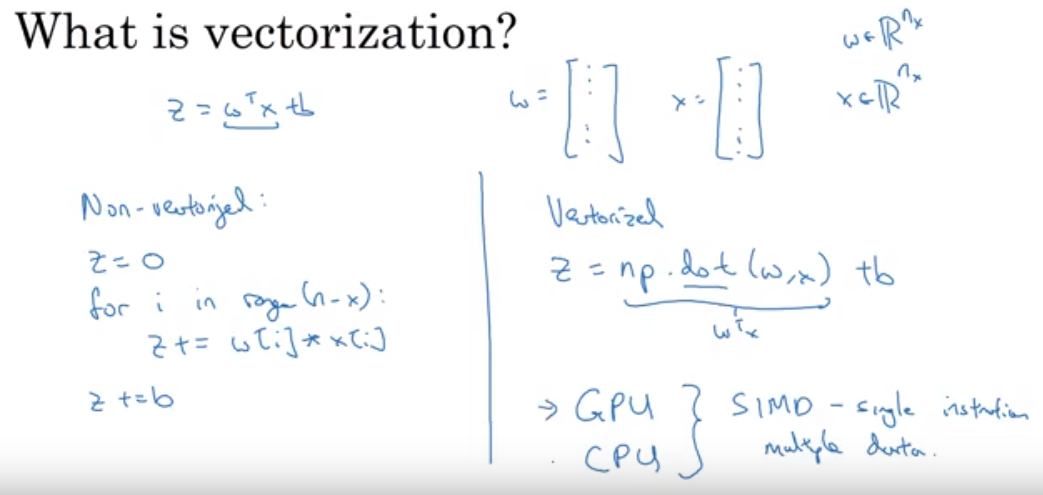 What is vectorization?
z = wᵀx + b
w = [⋮ ⋮]
x = [⋮ ⋮]
w ∈ ℝⁿˣ
x ∈ ℝⁿˣ
Non-vectorized:
z = 0
for i in range(n-x):
z += w[i] * x[i]
z += b
Vectorized
z = np.dot(w,x) + b
wᵀx
→ GPU
CPU
} SIMD - single instruction
multiple data.